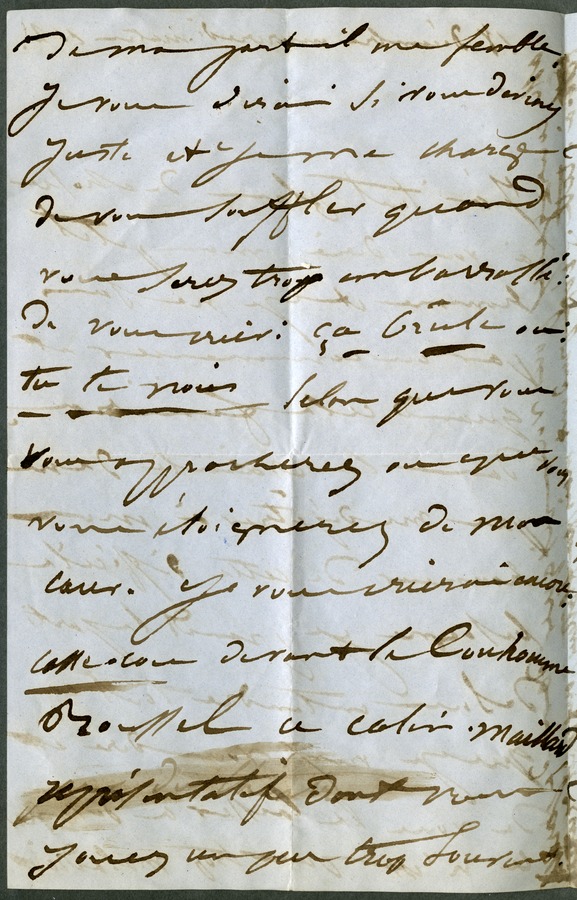 De ma part il me semble.
Je vous dirai si vous devinez
juste et je me charge
de vous souffler quand
vous serez trop embarrassé.
De vous crier: ça brûle ou:
tu te noies selon que vous
vous approcherez ou que vous
vous éloignerez de mon
cœur. Je vous crierai encore:
casse-cou devant le bonhomme
Broussel ce colin-maillard
représentatif dont vous
jouez un peu trop souvent.